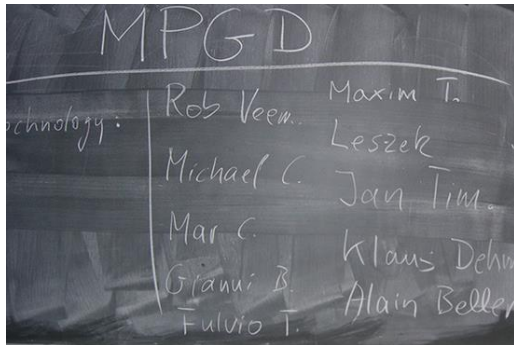 MPGD
echnology:
Rob Veen..
Michael C.
Mar C.
Gianni B.
Fulvio T.
Maxim T.
Leszek
Jan Tim.
Klaus Dehm
Alain Beller